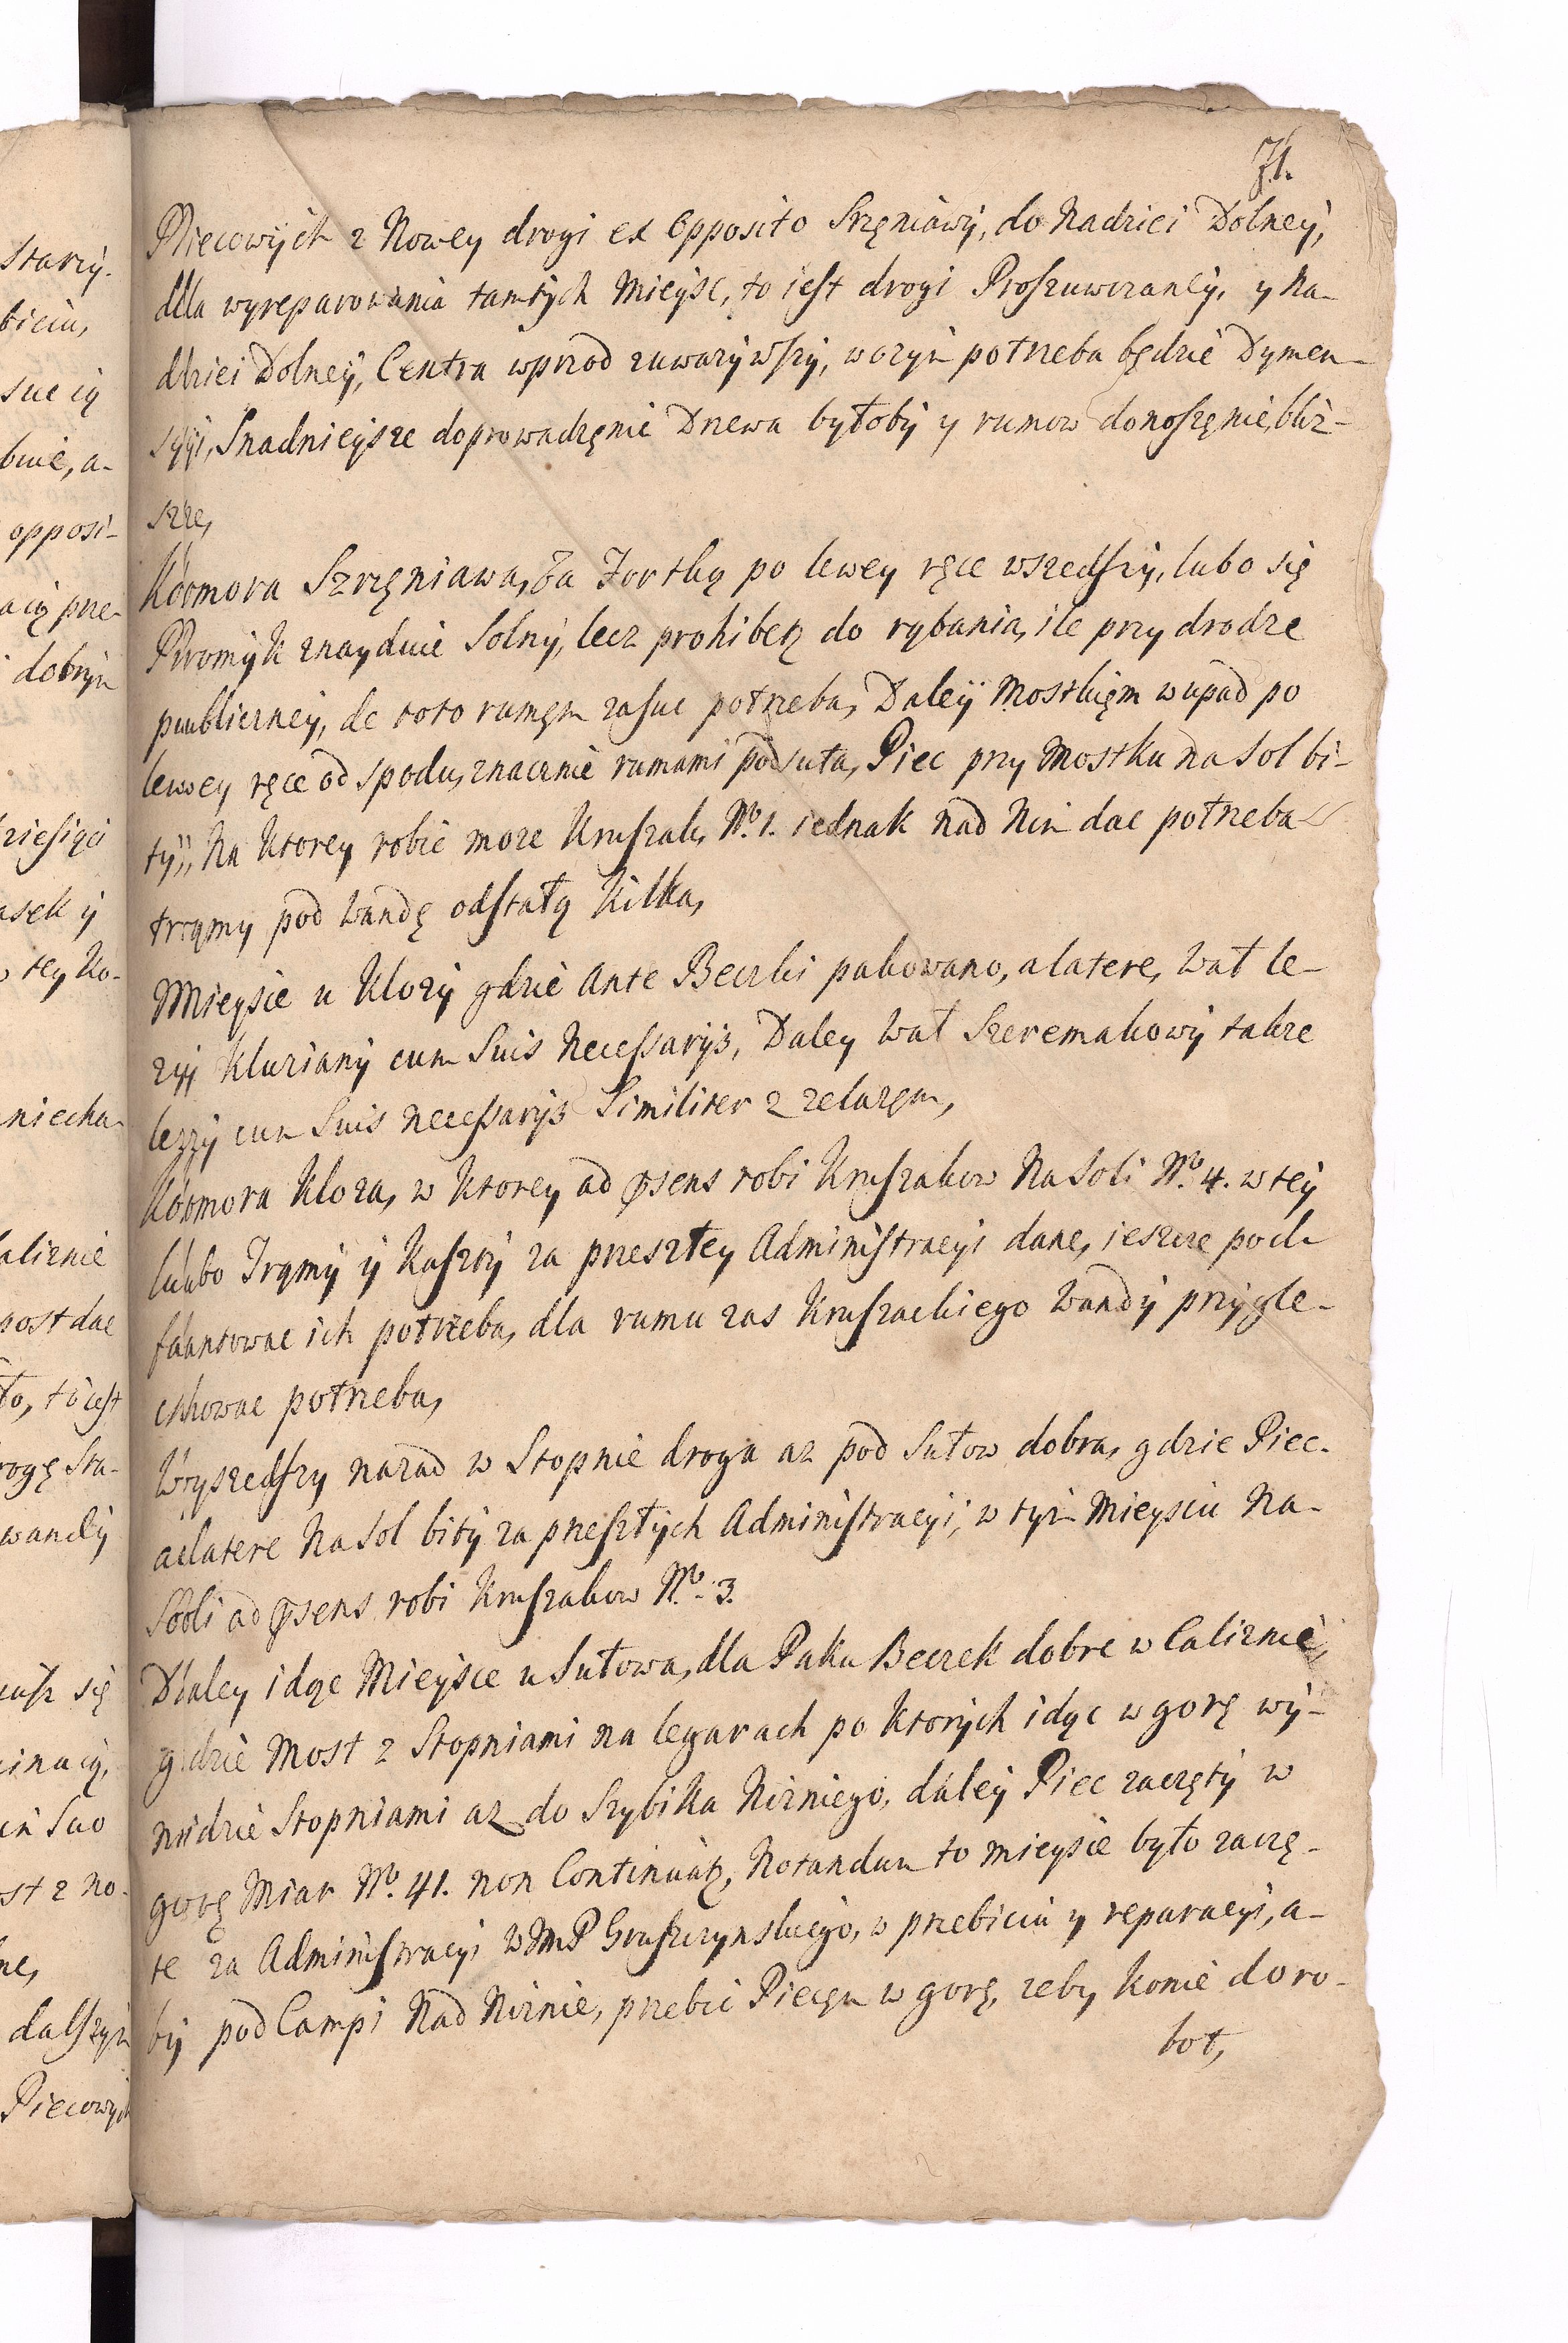 71.
Piecowych z Nowey drogi ex Opposito Srzęniawy, do Nadziei Dolney,
dla wyreparowania tamtych Mieysc, to iest drogi Proszuwczaney, y Na-
dziei Dolney, Centra wprzod zuwazywszy, wczym potrzeba będzie Dymen-
syyi, Snadnieysze doprowadzęnie Drzewa byłoby y rumow donoszęnie, bliz-
sze,
Komora Szrzęniawa, Za Fortką po lewey ręce wszedszy, lubo się
Promyk znayduie Solny, lecz prohibetz do rąbania, ile przy drodze
publiczney, de toto rumęm zasuc potrzeba, Daley Mostkięm wupad po
lewey ręce od spodu, znacznie rumami podsuta, Piec przy Mostku na Sol bi-
ty, Na Ktorey robic moze Kruszak, No. 1. iednak nad Nim dac potrzeba
trąmy pod Wandę odstałą Kilka,
Mieysce u Klozy gdzie Ante Beczki pakowano, alatere, Wał le-
zy Kluziany cum Suis Necessarijs, Daley Wał Szeremakowy takze
lezzy cum Suis necessarijs Similiter z zelazem,
Komora Kloza, w Ktorey ad prsens robi Kruszakow Na Soli No. 4. w tey
lubo Trąmy y Kaszty za przeszłey Administracyi dane, ieszcze pod-
fantowac ich potrzeba, dla rumu zas Kruszackiego Wandy przygle-
chowac potrzeba,
Wyszedszy nazad w Stopnie droga az pod Sułow dobra, gdzie Piec
alatere Na Sol bity za przeszłych Administracyi, w tym Mieyscu Na-
Soli ad prsens robi Kruszakow No. 3.
Daley idąc Mieysce u Sułowa, dla Paku Beczek dobre w Caliznie,
gdzie Most z Stopniami na legarach po Ktorych idąc w gorę wy-
nidzie Stopniami az do Szybika Nizniego, daley Piec zaczęty w
gorę Miar No. 41. non Continuatz, Notandum to mieysce było zaczę-
te za Administracyi WJmP Gruszczynskiego, w przebiciu y reparacyi, a-
by pod Campi Nad Niznie, przebic Piecęm w gorę, zeby konie do ro-
bot,
starzy.
biciu,
opposi-
dobrym
asek y
o tey Ko-
post dac
rogę Sta-
wandy
dalszym
Piecowych